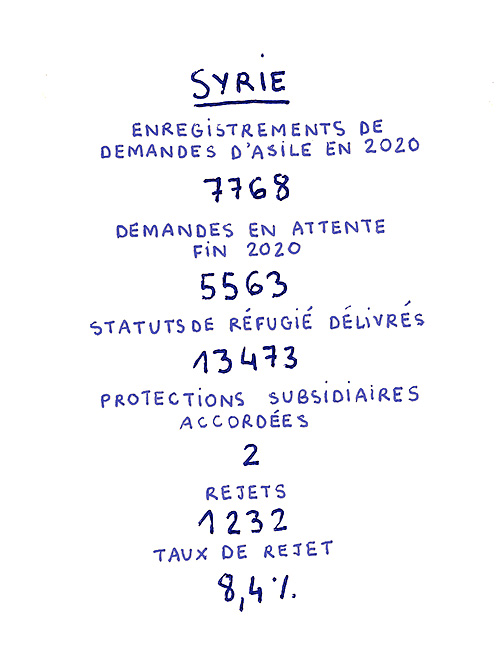 SYRIE
ENREGISTREMENTS DE
DEMANDES D'ASILE EN 2020
7768
DEMANDES EN ATTENTE
FIN 2020
5563
STATUTS DE RÉFUGIÉ DÉLIVRÉS
13473
PROTECTIONS SUBSIDIAIRES
ACCORDÉES
2
REJETS
1232
TAUX DE REJET
8,4%